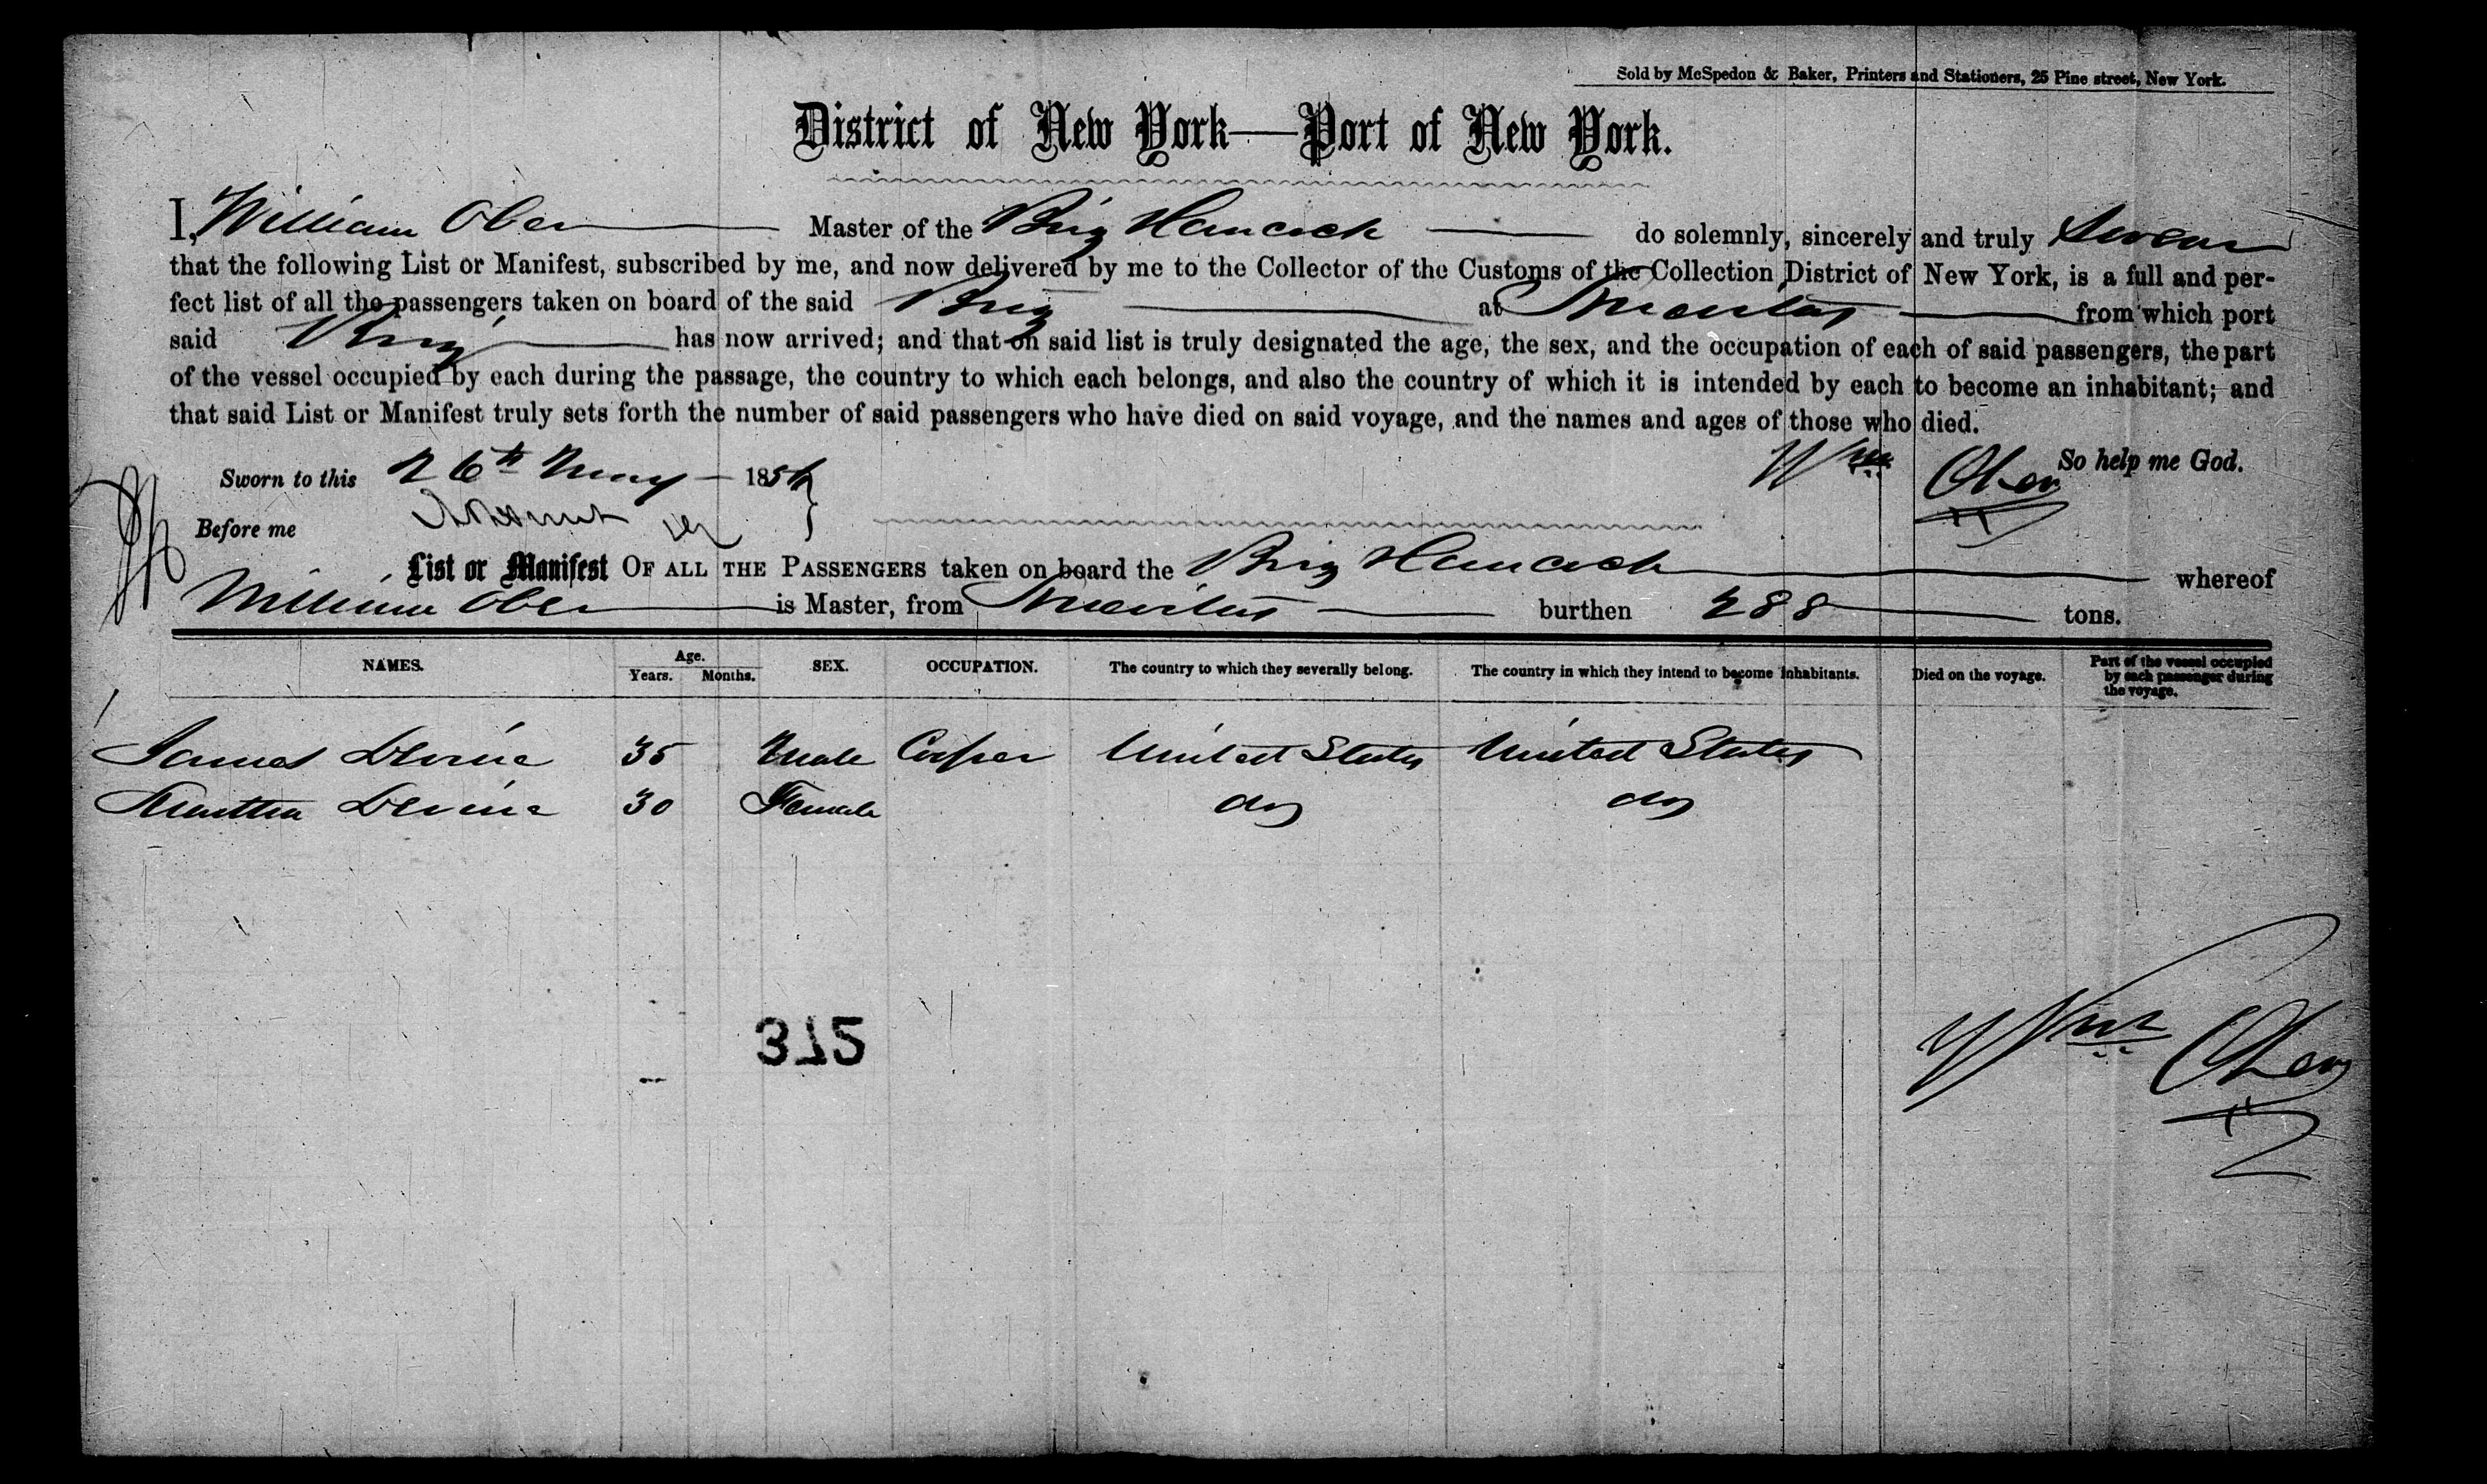 Sold by McSpedon & Baker, Printers and Stationers, 25 Pine street, New York.
District of New York—Port of New York.
I, William Ober Master of the Brig Hancock do solemnly, sincerely and truly Swear
that the following List or Manifest, subscribed by me, and now delivered by me to the Collector of the Customs of the Collection District of New York, is a full and per-
fect list of all the passengers taken on board of the said Brig at from which port
said Brig has now arrived; and that on said list is truly designated the age, the sex, and the occupation of each of said passengers, the part
of the vessel occupied by each during the passage, the country to which each belongs, and also the country of which it is intended by each to become an inhabitant; and
that said List or Manifest truly sets forth the number of said passengers who have died on said voyage, and the names and ages of those who died.
So help me God.
Sworn to this 26th May 1854
Wm Ober
Before me
List or Manifest OF ALL THE PASSENGERS taken on board the Brig Hancock whereof
William Ober is Master, from burthen 288 tons.
NAMES. Age. Years. Months. SEX. OCCUPATION. The country to which they severally belong. The country in which they intend to become inhabitants. Died on the voyage. Part of the vessel occupied by each passenger during the voyage.
James Devine 35 Male Cooper United States United States
Devine 30 Female do do
312
Wm Ober